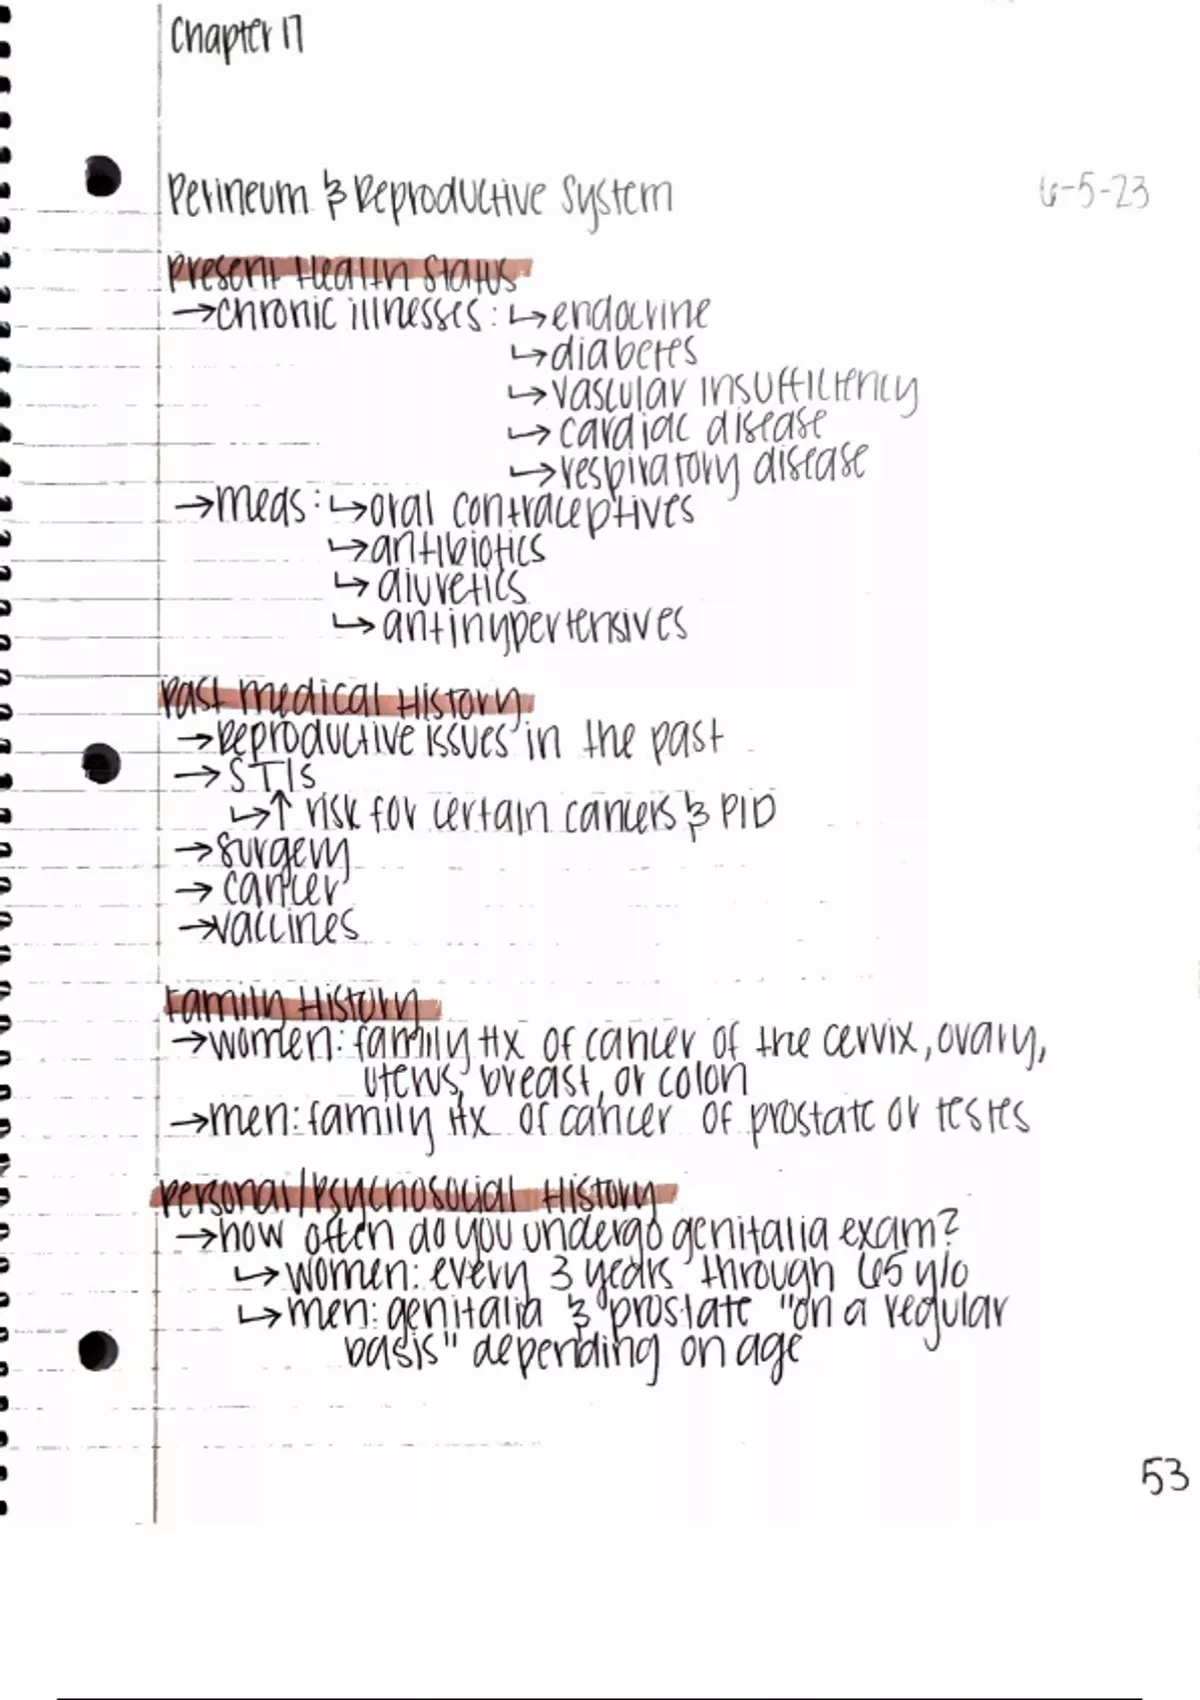 Chapter 17
Perineum & Reproductive System 6-5-23
Present Health Status
→chronic illnesses: ↳endocrine
↳diabetes
↳vascular insufficiency
↳cardiac disease
↳respiratory disease
→meds: ↳oral contraceptives
↳antibiotics
↳diuretics
↳antihypertensives
Past Medical History
→Reproductive issues in the past
→STIs
↳↑ risk for certain cancers & PID
→surgery
→cancer
→vaccines
Family History
→women: family Hx of cancer of the cervix, ovary,
uterus, breast, or colon
→men: family Hx of cancer of prostate or testes
Personal/Psychosocial History
→how often do you undergo genitalia exam?
↳women: every 3 years through 65 y/o
↳men: genitalia & prostate "on a regular
basis" depending on age
53